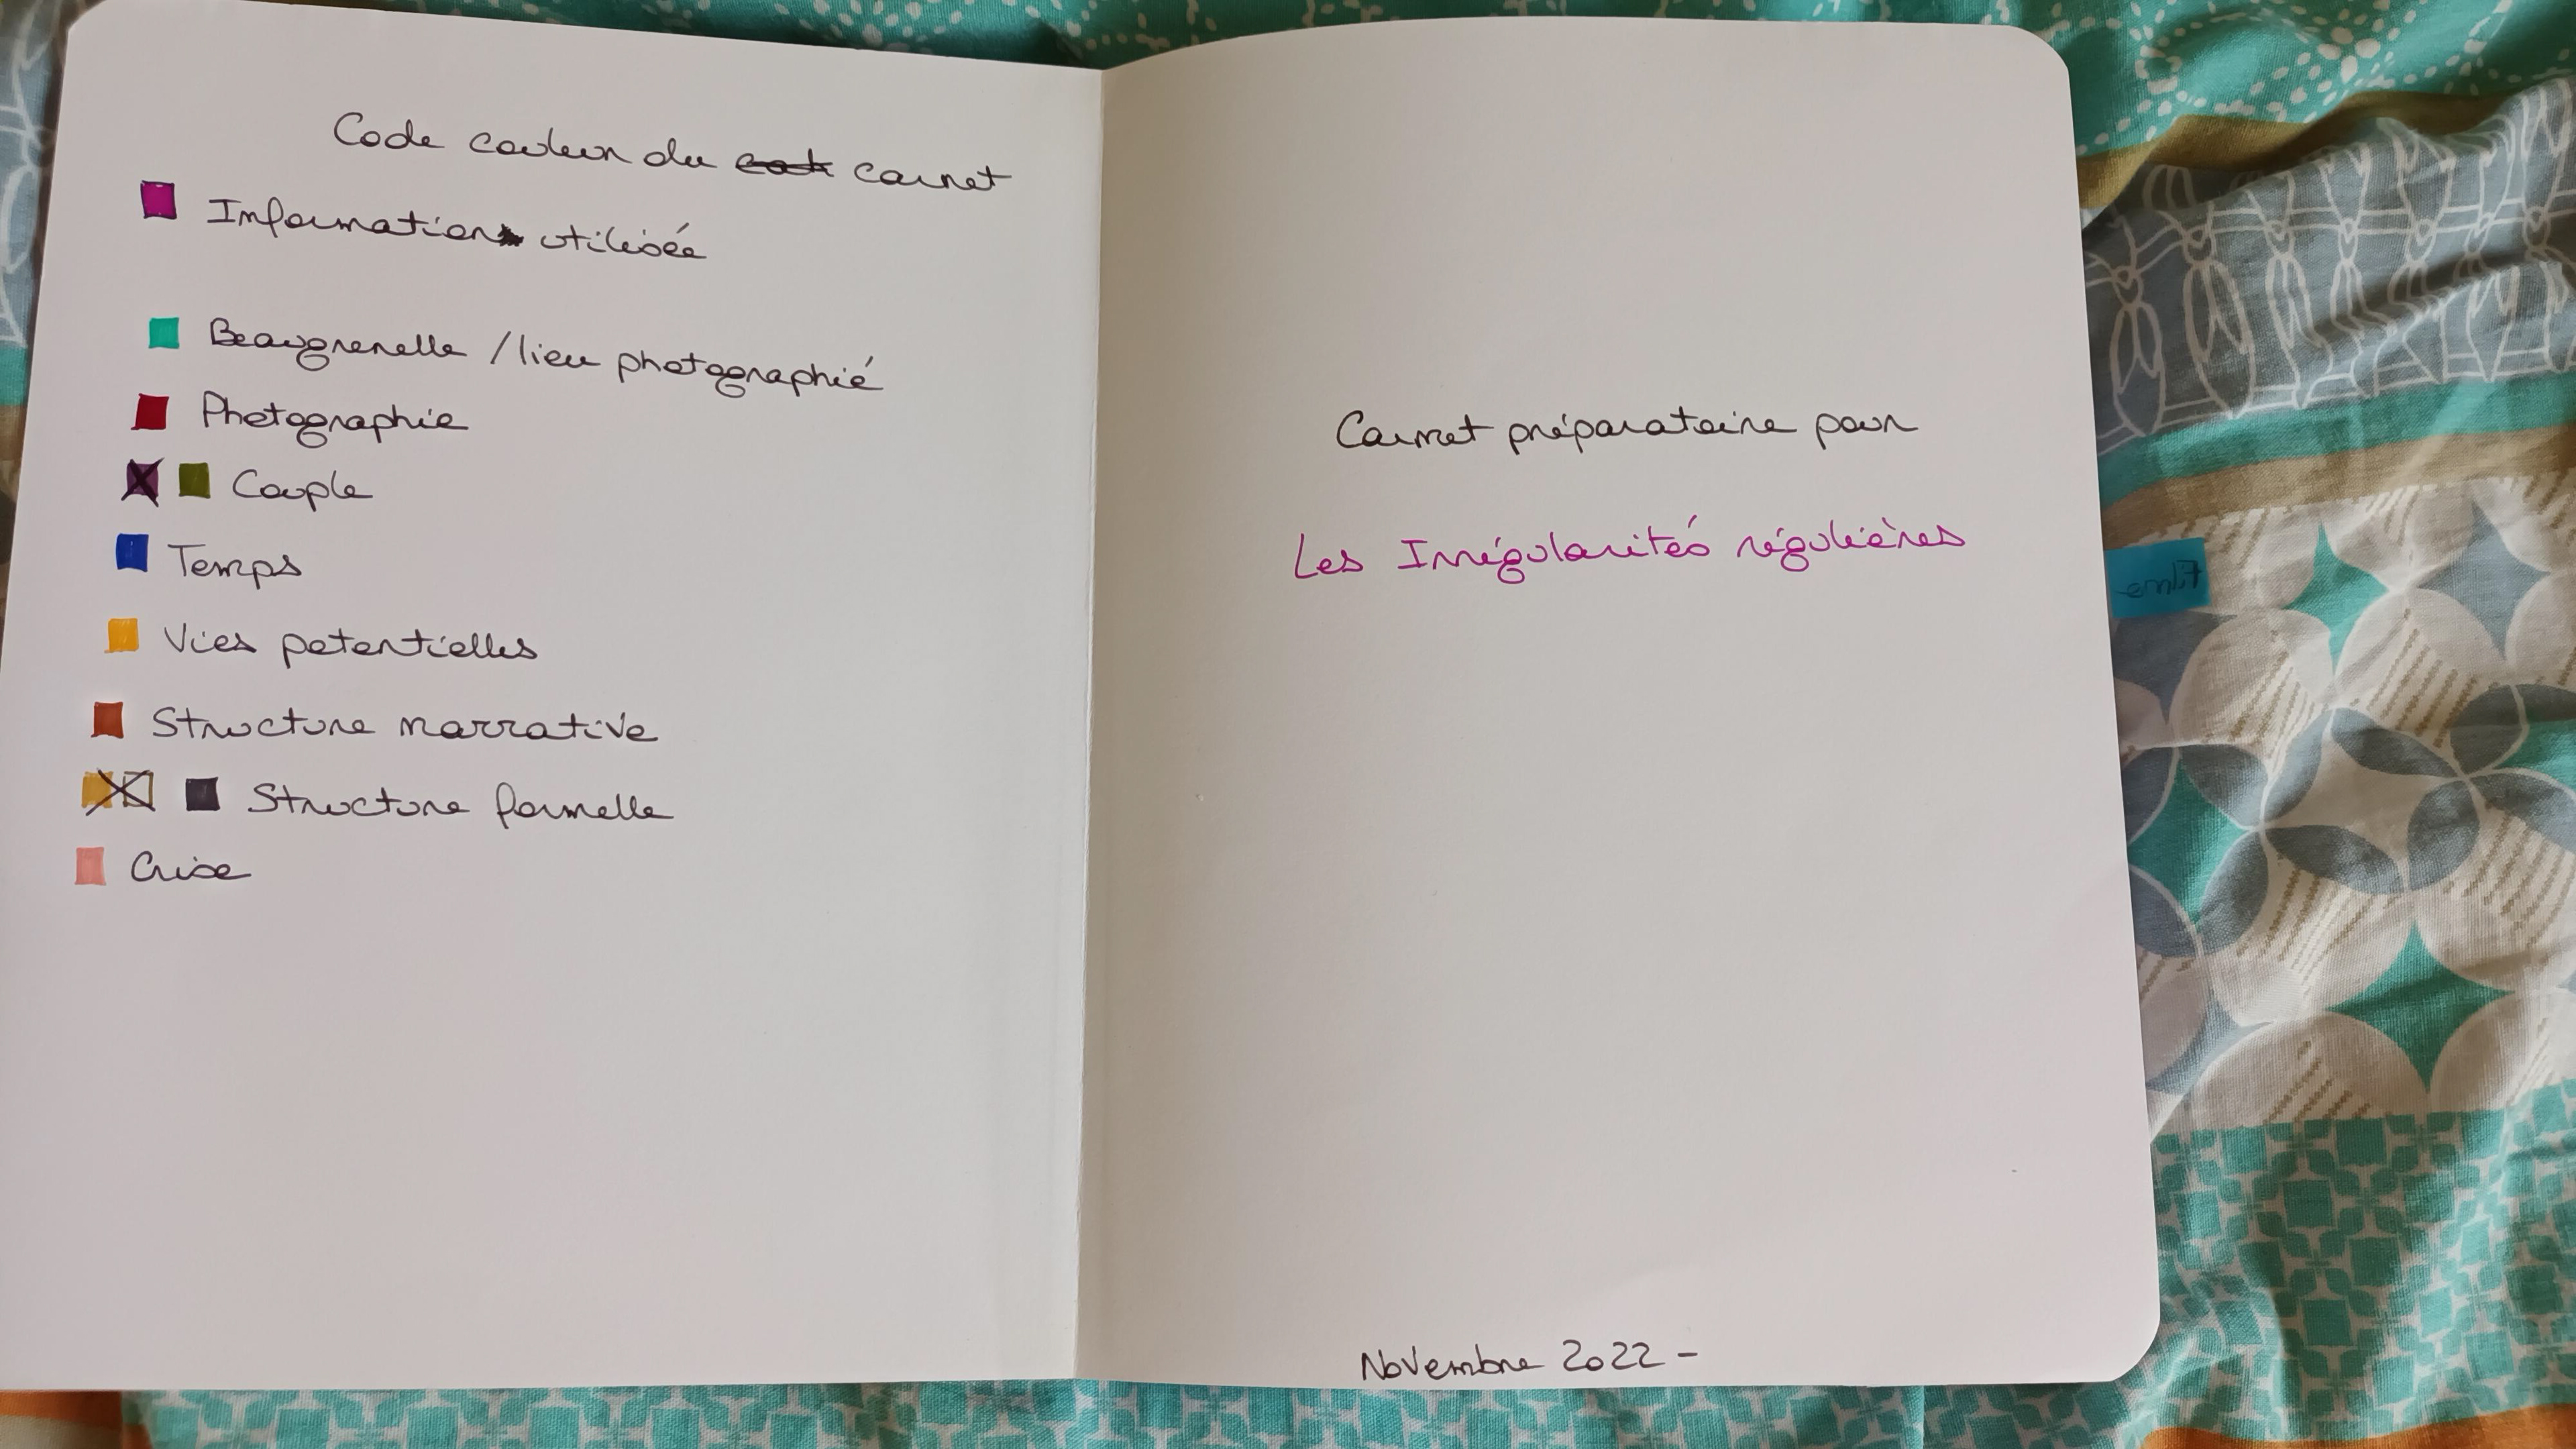 Code couleur du carnet
Information utilisée
Beaugrenelle / lieu photographié
Photographie
Couple
Temps
Vies potentielles
Structure narrative
Structure formelle
Crise
Carnet préparatoire pour
Les Irrégularités régulières
Novembre 2022 -